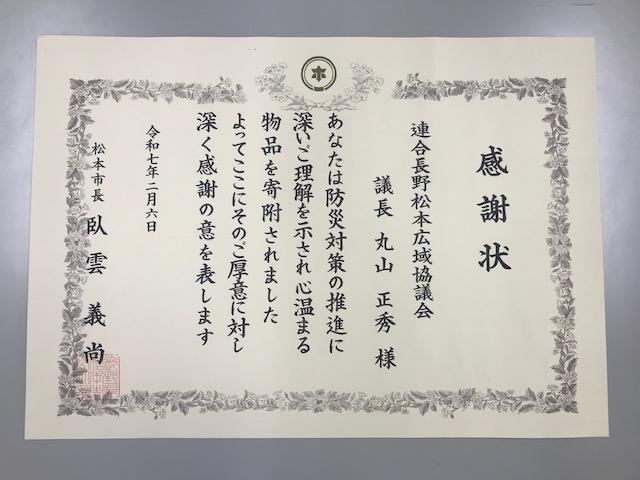 感謝状
連合長野松本広域協議会
議長 丸山 正秀 様
あなたは防災対策の推進に
深いご理解を示され心温まる
物品を寄附されました
よってここにそのご厚意に対し
深く感謝の意を表します
令和七年二月六日
松本市長 臥雲 義尚